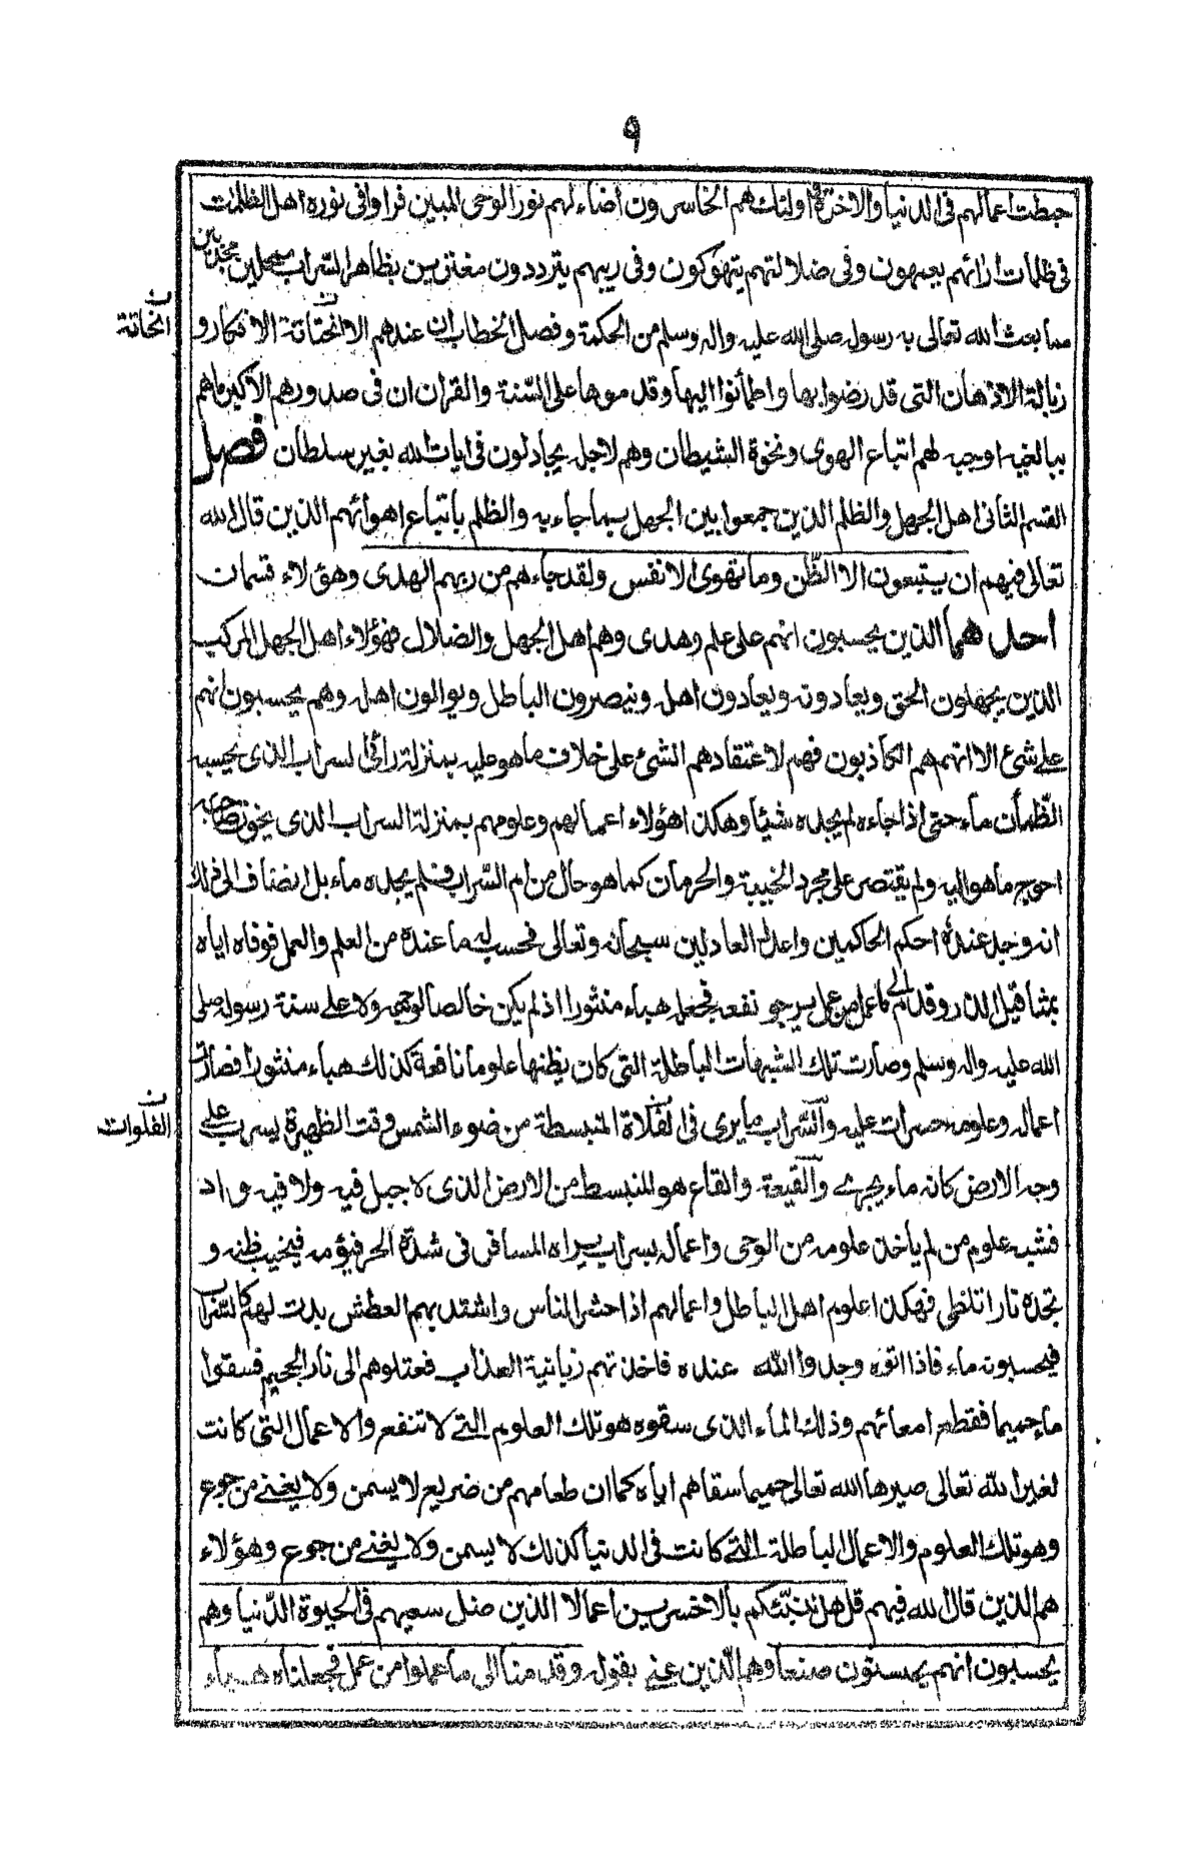 ٩
حبطت اعمالهم فى الدنيا والاخرة و اولئك هم الخاسرون اضاء لهم نور الوحى المبين فراوا فى نوره اهل الظلمات
فى ظلمات ارائهم يعمهون وفى ضلالتهم يتهوكون وفى ريبهم يترددون مغترين بظاهر السراب ممحلين مجدبين
مما بعث الله تعالى به رسوله صلى الله عليه واله وسلم من الحكمة وفصل الخطاب ان عندهم الا نحاتة الافكار و
النخاتة
زبالة الاذهان التى قد رضوا بها واطمأنوا اليها وقدموها على السّنة والقران ان فى صدورهم الا كبر ماهم
ببالغيه اوجبه لهم اتباع الهوى ونخوة الشيطان وهم لاجله يجادلون فى ايات الله بغير سلطان فصل
القسم الثانى اهل الجهل والظلم الذين جمعوا بين الجهل بما جاء به والظلم باتباع اهوائهم الذين قال الله
تعالى فيهم ان يتبعون الا الظّن وما تهوى الانفس ولقد جاءهم من ربهم الهدى وهؤلاء قسمان
احدهما الذين يحسبون انهم على علم وهدى وهم اهل الجهل والضلال فهؤلاء اهل الجهل المركب
الذين يجهلون الحق ويعادونه ويعادون اهله وينصرون الباطل ويوالون اهله وهم يحسبون انهم
على شئ الا انهم هم الكاذبون فهم لاعتقادهم الشئ على خلاف ماهو عليه بمنزلة رائى السراب الذى يحسبه
الظّمأن ماء حتى اذا جاءه لم يجده شيئا وهكذا هؤلاء اعمالهم وعلومهم بمنزلة السراب الذى يخون صاحبه
احوج ماهو اليه ولم يقتصر على مجرد الخيبة والحرمان كما هو حال من ام السّراب فلم يجده ماء بل انضاف الى ذلك
انه وجد عنده احكم الحاكمين واعدل العادلين سبحانه وتعالى فحسب له ما عنده من العلم والعمل فوفاه اياه
بمثاقيل الذر وقدم الى ما عمل من عمل يرجو نفعه فجعله هباء منثورا اذ لم يكن خالصا لوجهه ولا على سنة رسوله صلى
الله عليه واله وسلم وصارت تلك الشبهات الباطلة التى كان يظنها علوما نافعة كذلك هباء منثورا فصارت
اعماله وعلومه حسرات عليه والسّراب مايرى فى الفلاة المنبسطة من ضوء الشمس وقت الظهيرة يسرب على
الفلوات
وجه الارض كانه ماء يجرى والقيعة والقاع هو المنبسط من الارض الذى لا جبل فيه ولا فيه واد
فشبه علوم من لم يأخذ علومه من الوحى واعماله بسراب يراه المسافر فى شدة الحر فيؤمه فيخيب ظنه و
تجده نارا تلظى فهكذا علوم اهل الباطل واعمالهم اذا حشر الناس واشتد بهم العطش بدت لهم كالسّراب
فيحسبونه ماء فاذا اتوه وجدوا الله عنده فاخذتهم زبانية العذاب فعتلوهم الى نار الجحيم فسقوا
ماء حميما فقطع امعائهم وذلك الماء الذى سقوه هو تلك العلوم التى لا تنفع والاعمال التى كانت
لغير الله تعالى صيرها الله تعالى حميما سقاهم اياه كما ان طعامهم من ضريع لا يسمن ولا يغنى من جوع
وهو تلك العلوم والاعمال الباطلة التى كانت فى الدنيا كذلك لا يسمن ولا يغنى من جوع وهؤلاء
هم الذين قال الله فيهم قل هل ننبّئكم بالاخسرين اعمالا الذين ضل سعيهم فى الحيوة الدّنيا وهم
يحسبون انهم يحسنون صنعا وهم الّذين عنى بقوله وقدمنا الى ما عملوا من عمل فجعلناه هباء